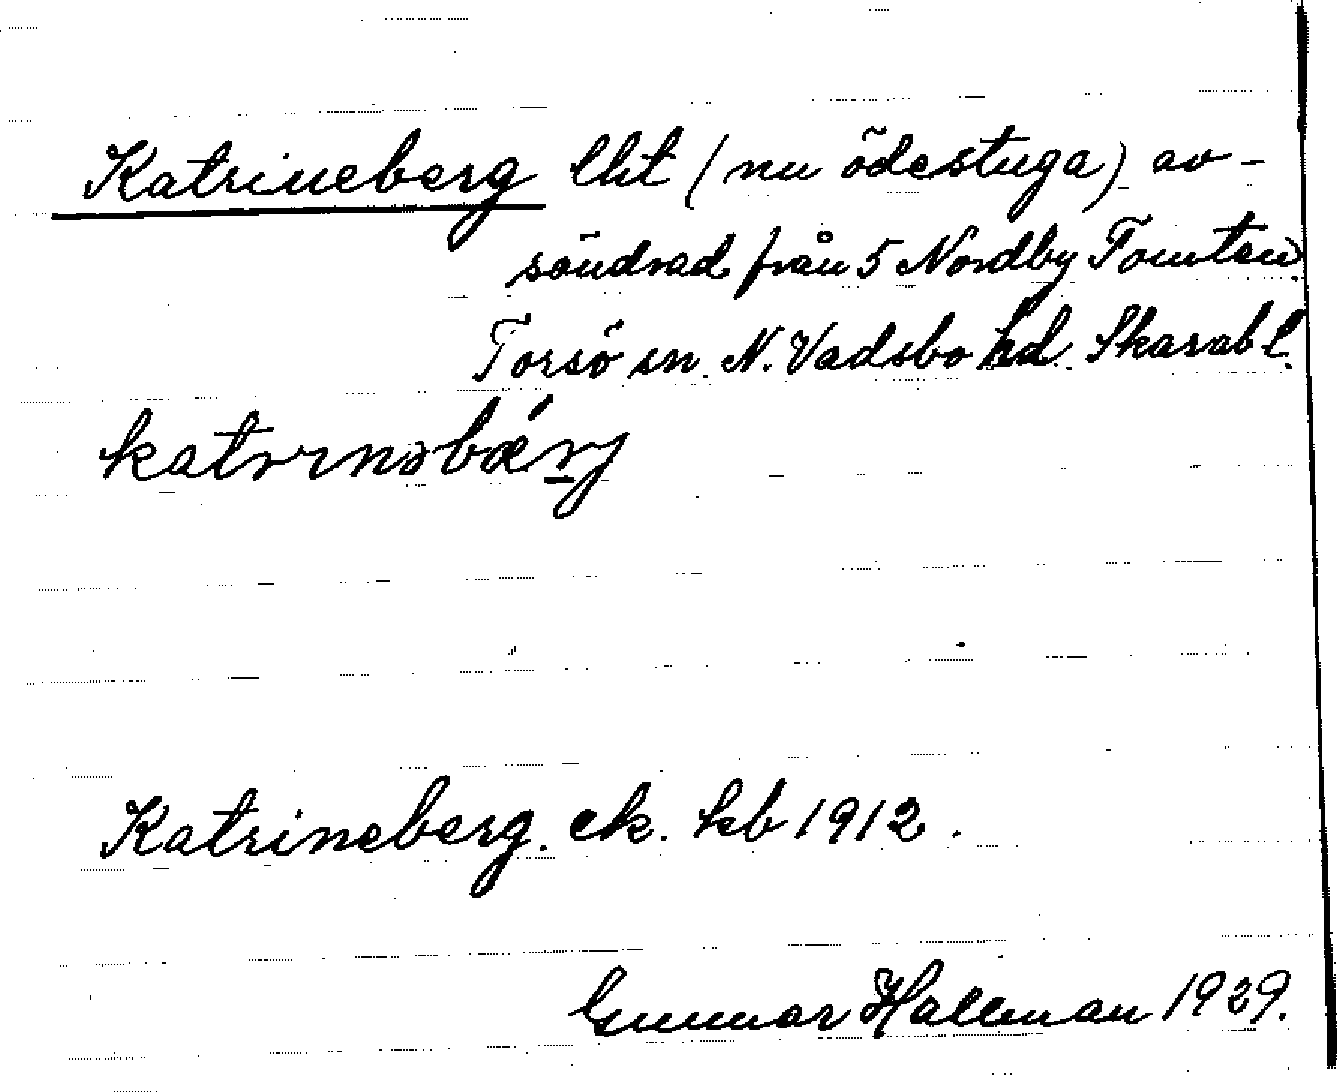 Katrineberg lht (nu ödestuga) av-
söndrad från 5 Nordby Tomten
Torsö sn. N. Vadsbo hd. Skarab l.
katrinəbærj
Katrineberg. ek. kb 1912.
Gunnar Hallman 1929.